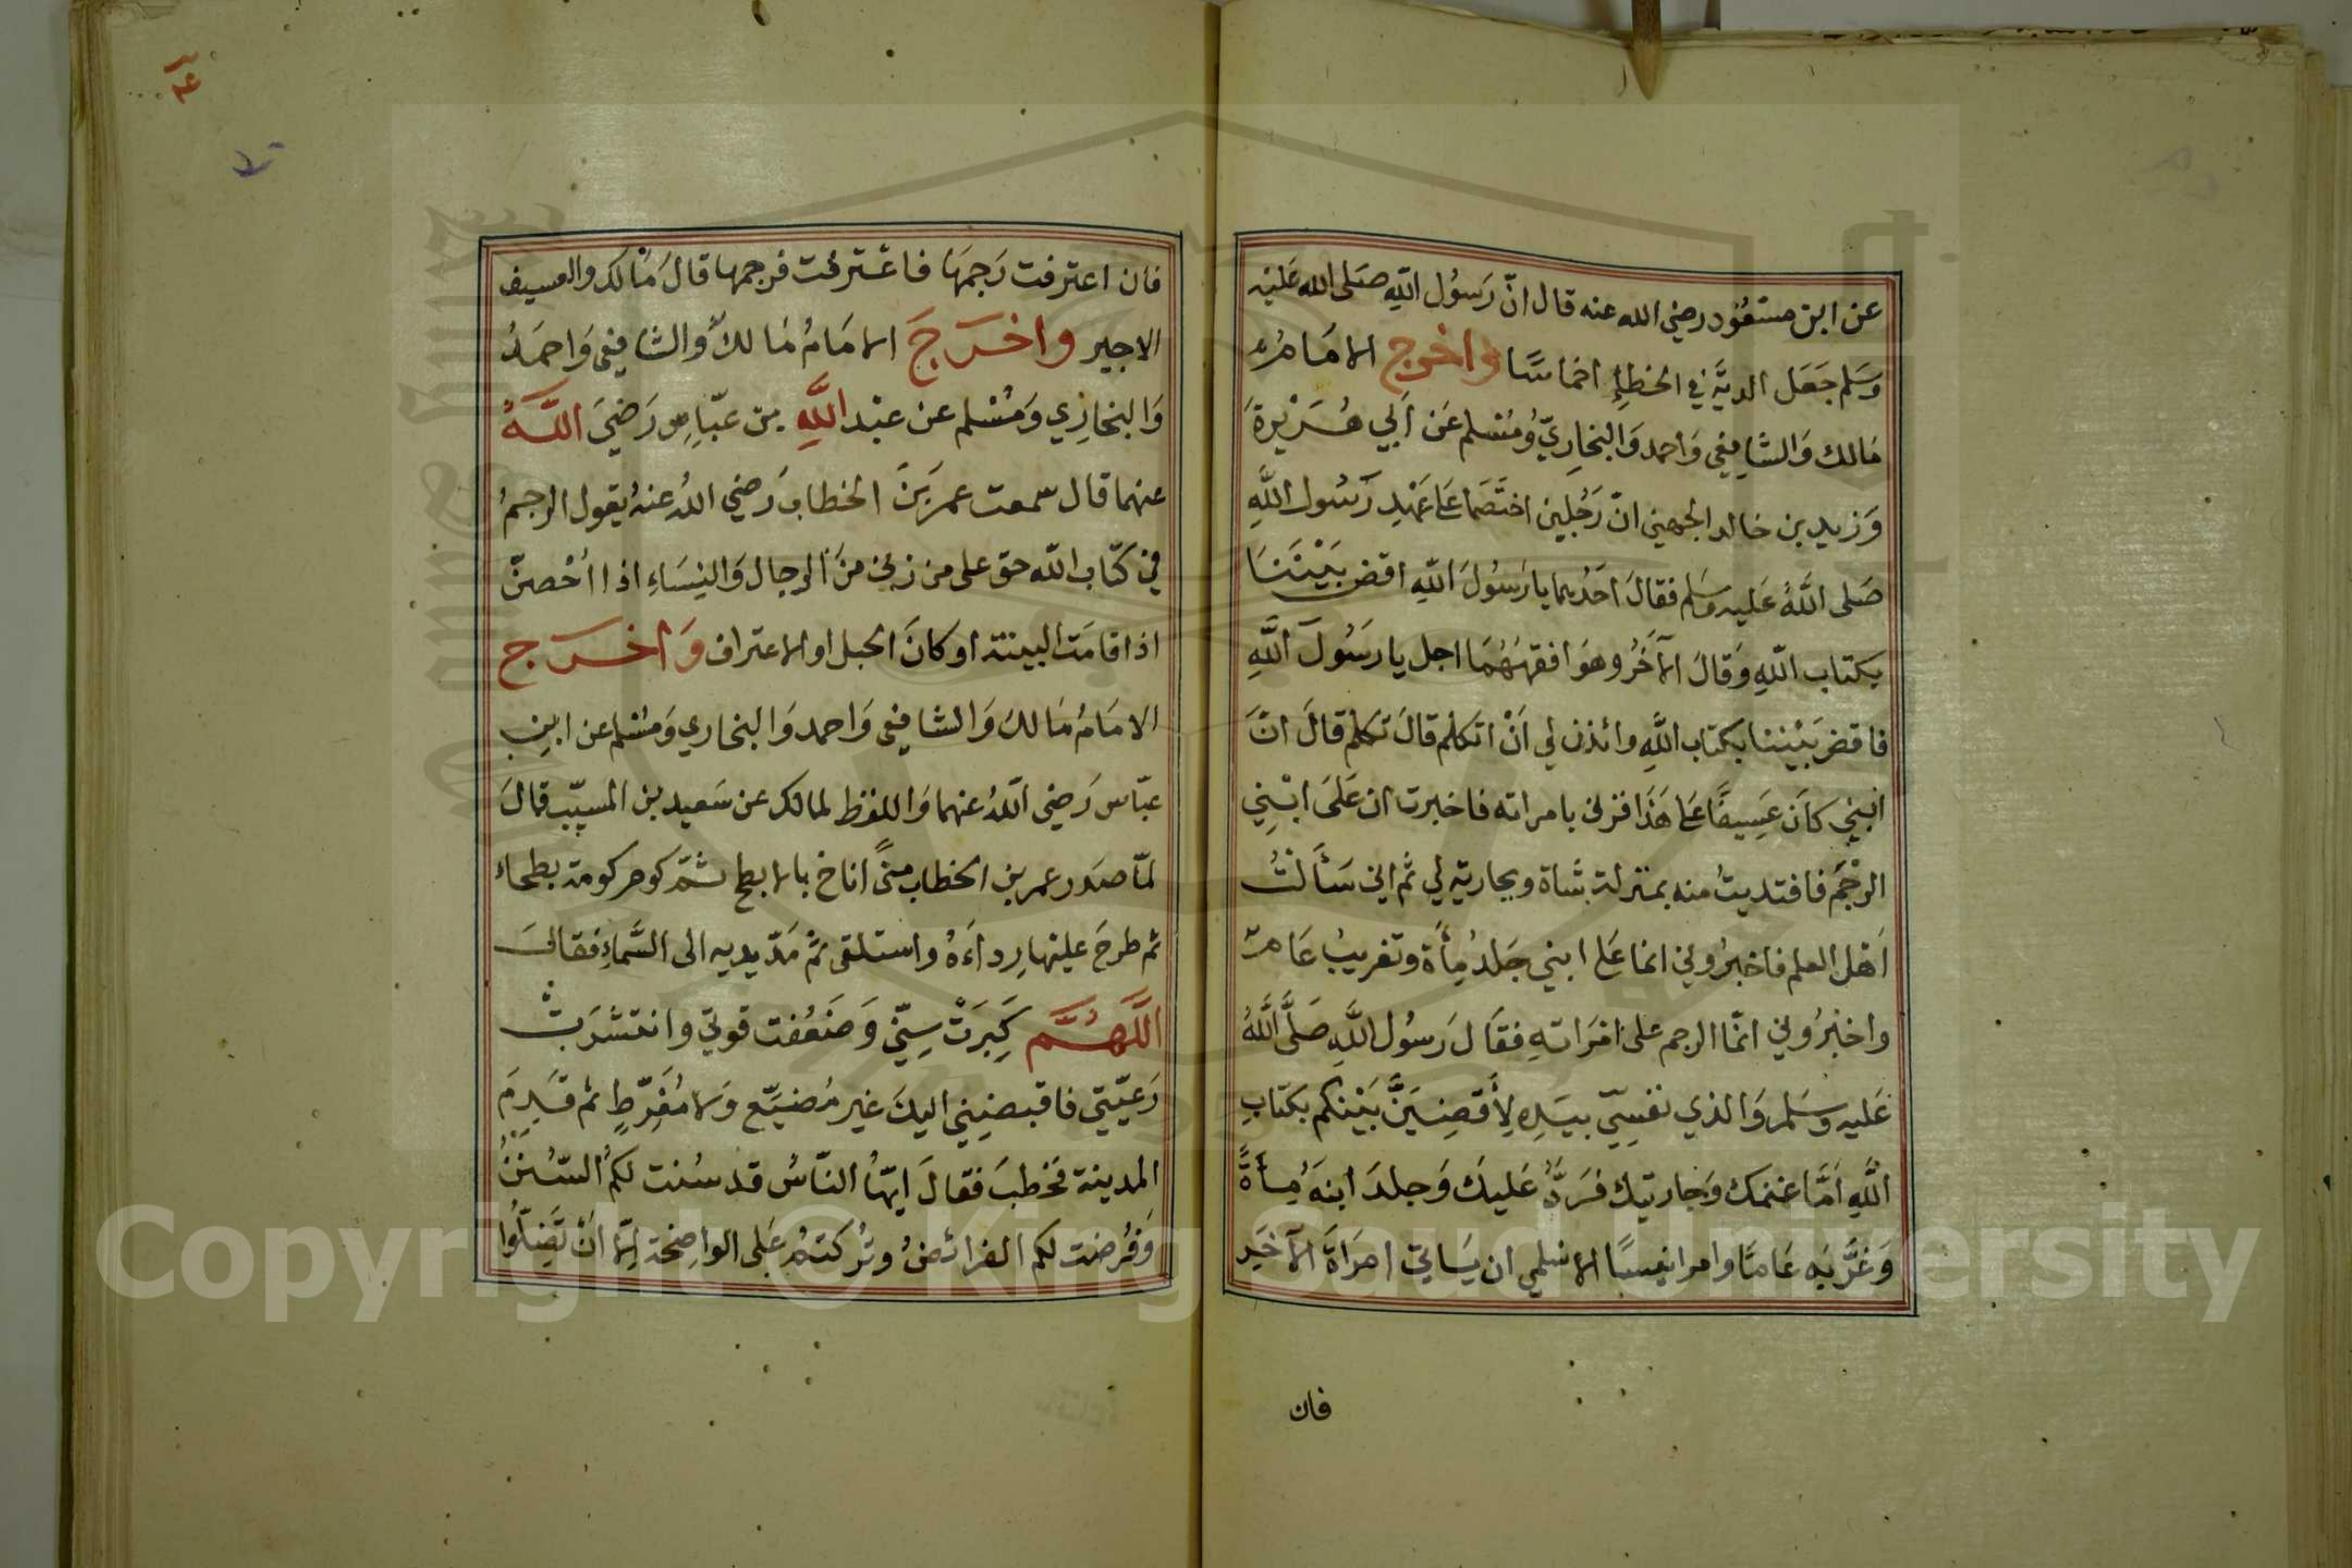 عن ابن مسعُود رضي الله عنه قال انّ رَسُول اللّهِ صَلى الله عَليْه
وَسَلم جَعَل الديَّة في الخطاءِ اخماسًا واخرج الامَامُ
مَالك وَالشّافِعي وَاحمد وَالبخاريّ وُمُسْلم عَن اَبي هُرَيْرةَ
وَزيد بن خالد الجهيني انّ رَجُلين اختَصَما عَلى عَهْدِ رَسُول اللَّهِ
صَلى اللَّهُ عَليه وسَلم فقالَ احَدُهما يا رَسُولَ اللّهِ اقض بَيْنَنَا
بكتاب اللّهِ وَقالَ الآخَرُ وهوَ افقههُمَا اجل يا رَسُولَ اللَّهِ
فاقض بَيْننا بكتاب اللَّهِ وائذن لي اَنْ اتكلم قالَ تكلم قالَ انَّ
ابْني كاَن عَسِيفًا عَلى هَذَا فزنى بامراته فاخبرت ان عَلَى ابْنِي
الرجْمَ فافتديتُ منه بمنزلة شاة وبجارية لي ثم اني سَأَلتُ
اَهْل العلم فاخبرُوني انما عَلى ابني جَلدُ مِأة وتغريبُ عَام
واخبرُوني انمّا الرجم على امرَاتهِ فقَال رَسُول اللَّهِ صَلَّى اللَّهُ
عَليه وسَلم وَالذي نفسِيّ بيَدِهِ لِأقضِيَنَّ بَيْنكم بكتَابِ
اللَّهِ اَمَّا غنمك وَجاريتك فرَدٌّ عَليكَ وَجلدَ ابنهَ مِأَةً
وَغرَّبَه عَامًا وامر انيسًا الاسْلمي ان يَاتي امرَاةَ الآخَر
فان
١٤
فان اعترفت رَجمَهَا فاعْترفت فرجمها قالَ مَالك والعسيف
الاجير واخرَجَ الامَامُ مَالكُ وَالشافِعي وَاحمَدُ
وَالبخارِي وَمُسْلم عن عبْد اللَّهِ بن عبّاسٍ رَضيَ اللَّهُ
عنهما قال سمعت عمر بَنَ الخطاب رَضي اللهُ عنهُ يقول الرجمُ
في كتّاب اللّه حق على من زنى منَ الرجال وَالنِسَاءِ اذا اُحْصنّ
اذا قامَت البينة او كانَ الحبل او الاعتراف وَاخرَج
الامَامُ مَالكُ وَالشافِعي وَاحمد وَالبخاري وَمسُلم عن ابن
عبّاس رَضي اللهُ عنهما وَاللفظ لمالك عن سَعيد بن المسيّب قالَ
لمّا صدَر عمر بن الخطاب منىً اناخ بالابطح ثمّ كوم كومة بطحاء
ثم طرحَ عليْها رِداءَهُ واستلقى ثمّ مَدّ يديه الى السَّماءِ فقالَ
اللَّهُمَّ كَبِرَتْ سِنّي وَضعُفت قوتي وانتشرَتْ
رَعيّتي فاقبضنِيني اليكَ غير مُضيّع وَلا مُفرّطٍ ثم قَدِمَ
المدينة فخطبَ فقالَ ايهّاُ النّاسُ قد سُنت لكمُ السّننُ
وَفُرضت لكم الفرائضُ وتُركتمُ عَلى الواضِحَة اِلاّ انْ تَضِلّوُا
Copyright © King Saud University